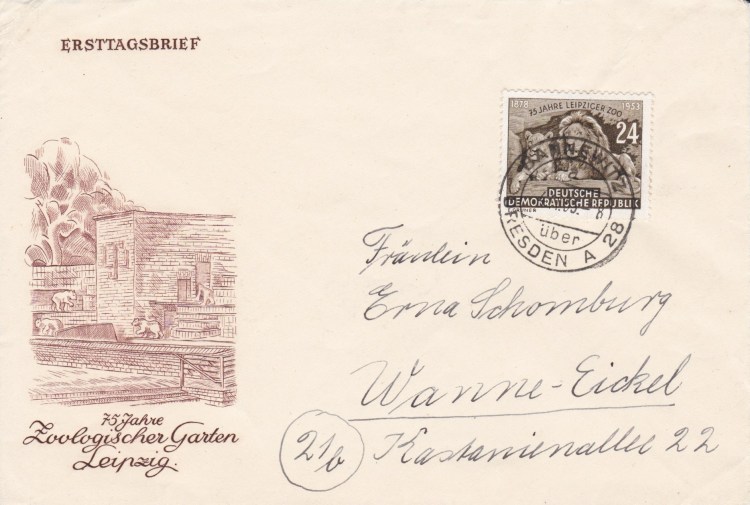 ERSTTAGSBRIEF
1878 75 JAHRE LEIPZIGER ZOO 1953
24
DEUTSCHE
DEMOKRATISCHE REPUBLIK
über
DRESDEN A 28
Fräulein
Erna Schomburg
Wanne-Eickel
21b Kastanienallee 22
75 Jahre
Zoologischer Garten
Leipzig.